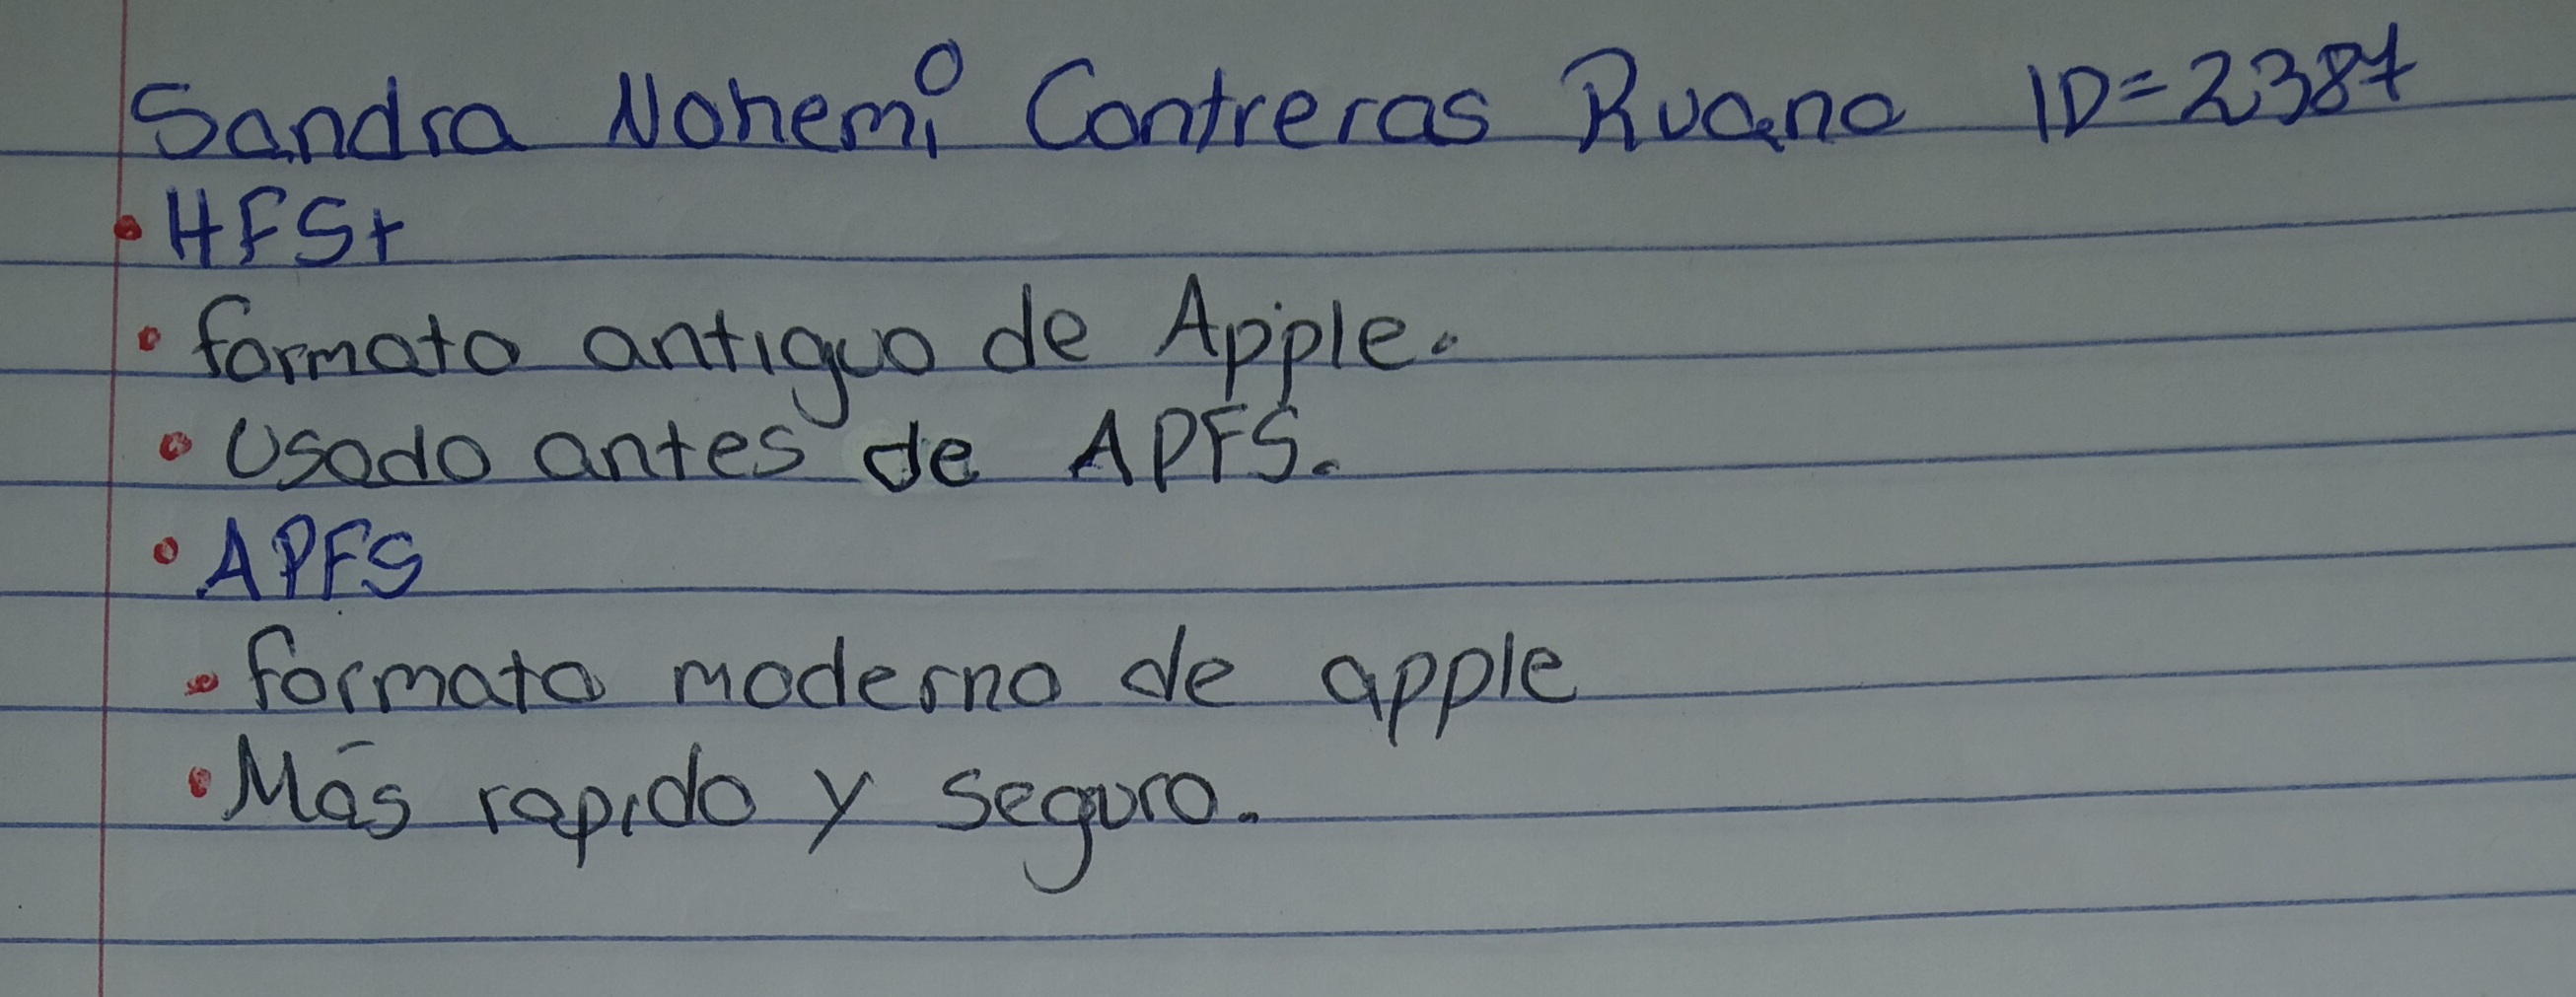 Sandra Nohemi Contreras Ruano ID=2387
• HFS+
• formato antiguo de Apple.
• Usado antes de APFS.
• APFS
• formato moderno de apple
• Más rapido y seguro.